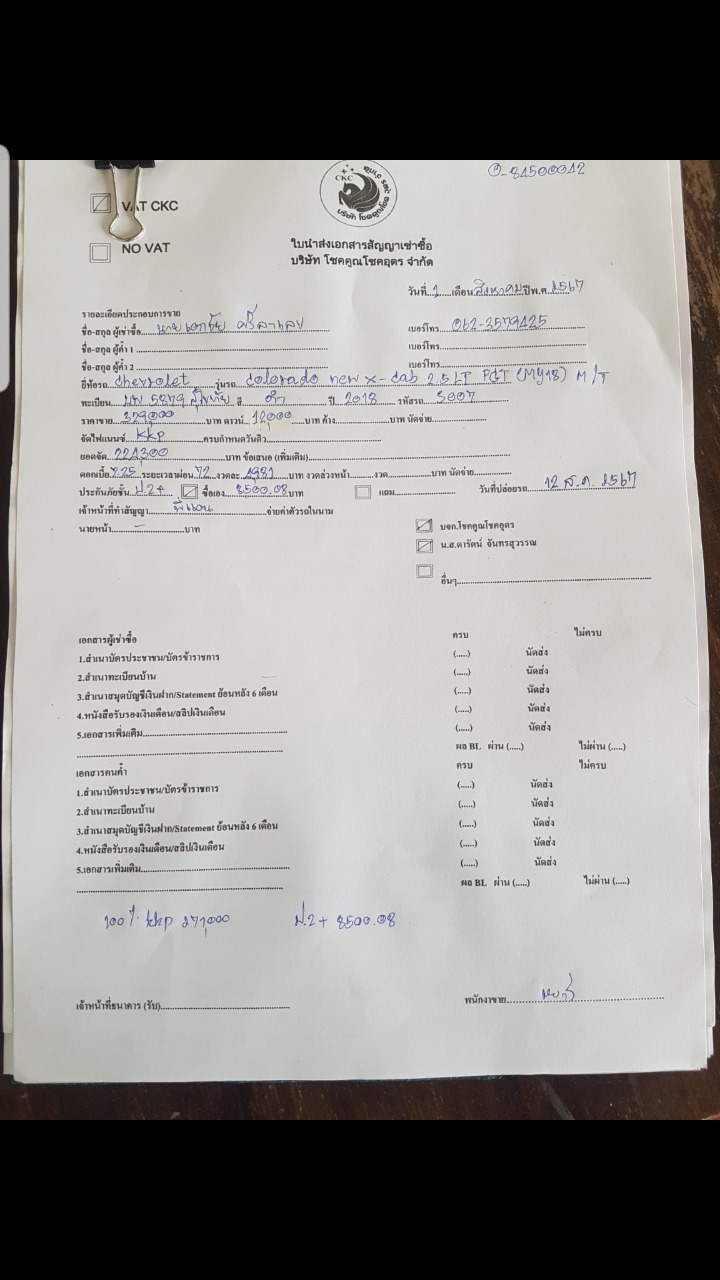 VAT CKC
NO VAT
CKC
ใบนำส่งเอกสารสัญญาเช่าซื้อ
บริษัท โชคคูณโชคอุดร จำกัด
วันที่..1....เดือน.สิงหาคม.ปีพ.ศ..2567
รายละเอียดประกอบการขาย
ชื่อ-สกุล ผู้เช่าซื้อ.....นาย
เบอร์โทร..062-3579425
ชื่อ-สกุล ผู้ค้ำ 1
เบอร์โทร
ชื่อ-สกุล ผู้ค้ำ 2
เบอร์โทร
ยี่ห้อรถ..Chevrolet.......รุ่นรถ...Colorado new x-cab 2.5 LT (MY18) M/T
ทะเบียน... 5879 สุโขทัย สี......ดำ......ปี...2018......รหัสรถ...3007
ราคาขาย...329,000......บาท ดาวน์..12,000....บาท ค้าง..............บาท นัดจ่าย
จัดไฟแนนซ์...KKP.........ครบกำหนดวันคิว
ยอดจัด...221,300.........บาท ข้อเสนอ (เพิ่มเติม)
ดอกเบี้ย.7.25..ระยะเวลาผ่อน..72..งวดละ..4931...บาท งวดล่วงหน้า........งวด...........บาท นัดจ่าย
ประกันภัยชั้น..ป.2+.. ซื้อเอง...8500.08.บาท แถม................ วันที่ปล่อยรถ....12 ส.ค. 2567
เจ้าหน้าที่ทำสัญญา............จ่ายค่าตัวรถในนาม
นายหน้า......-...........บาท
บจก.โชคคูณโชคอุดร
น.ส.ดารัตน์ จันทรสุวรรณ
อื่นๆ
เอกสารผู้เช่าซื้อ ครบ ไม่ครบ
1.สำเนาบัตรประชาชน/บัตรข้าราชการ (.....) นัดส่ง
2.สำเนาทะเบียนบ้าน (.....) นัดส่ง
3.สำเนาสมุดบัญชีเงินฝาก/Statement ย้อนหลัง 6 เดือน (.....) นัดส่ง
4.หนังสือรับรองเงินเดือน/สลิปเงินเดือน (.....) นัดส่ง
5.เอกสารเพิ่มเติม (.....) นัดส่ง
ผล BL ผ่าน (.....) ไม่ผ่าน (.....)
เอกสารคนค้ำ ครบ ไม่ครบ
1.สำเนาบัตรประชาชน/บัตรข้าราชการ (.....) นัดส่ง
2.สำเนาทะเบียนบ้าน (.....) นัดส่ง
3.สำเนาสมุดบัญชีเงินฝาก/Statement ย้อนหลัง 6 เดือน (.....) นัดส่ง
4.หนังสือรับรองเงินเดือน/สลิปเงินเดือน (.....) นัดส่ง
5.เอกสารเพิ่มเติม (.....) นัดส่ง
ผล BL ผ่าน (.....) ไม่ผ่าน (.....)
100% kkp 271,000 ป.2+ 8500.08
เจ้าหน้าที่ธนาคาร (รับ)
พนักงาขาย